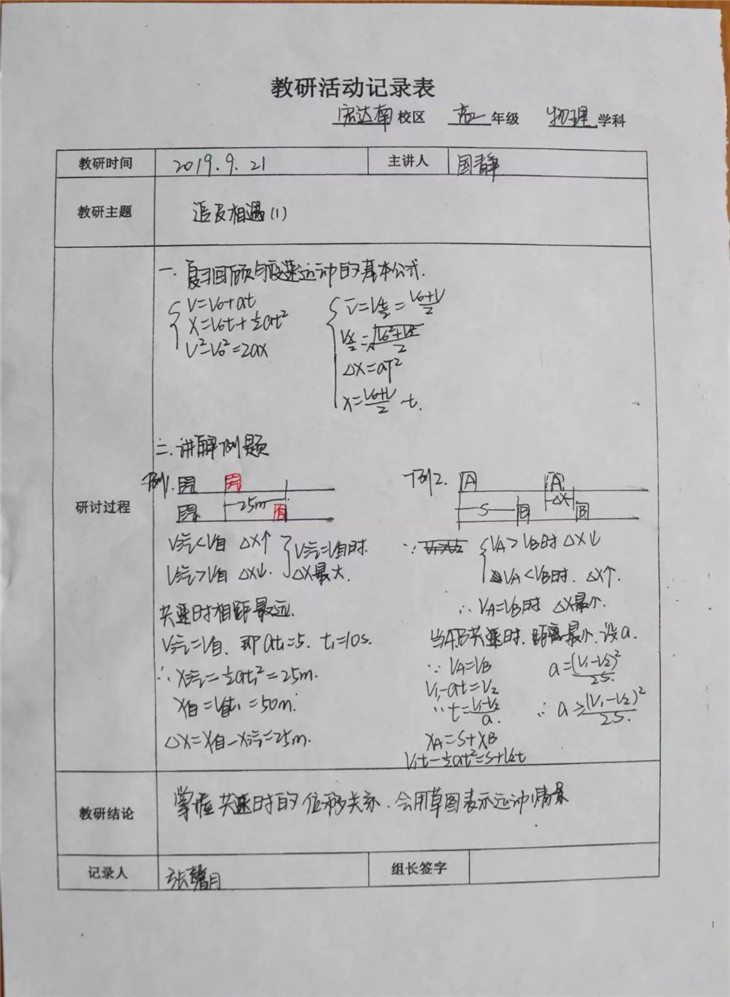 教研活动记录表
宏达南校区 高二年级 物理学科
教研时间 2019.9.21 主讲人 国静
教研主题 追及相遇(1)
研讨过程
一.复习回顾匀变速运动的基本公式.
V=V0+at
X=V0t+½at²
V²-V0²=2ax
V̄=Vt/2=(V0+V)/2
Vx/2=√((V0²+V²)/2)
ΔX=aT²
X=(V0+V)/2 t.
二.讲解例题
例1.
25m
V汽<V自 ΔX↑
V汽>V自 ΔX↓.
V汽=V自时.
ΔX最大.
共速时相距最远.
V汽=V自. 即at₁=5. t₁=10s.
∴X汽=½at₁²=25m.
X自=V自t₁=50m.
ΔX=X自-X汽=25m.
例2. A A
S B ΔX B
∵ VA>VB时ΔX↓
VA<VB时. ΔX↑.
∴VA=VB时 ΔX最小.
当A.B共速时.距离最小.设a.
∵VA=VB
V₁-at=V₂
∴t=(V₁-V₂)/a.
XA=S+XB
V₁t-½at²=S+V₂t
a=(V₁-V₂)²/2S.
∴a≥(V₁-V₂)²/2S.
教研结论 掌握共速时的位移关系.会用草图表示运动情景
记录人 张馨月 组长签字